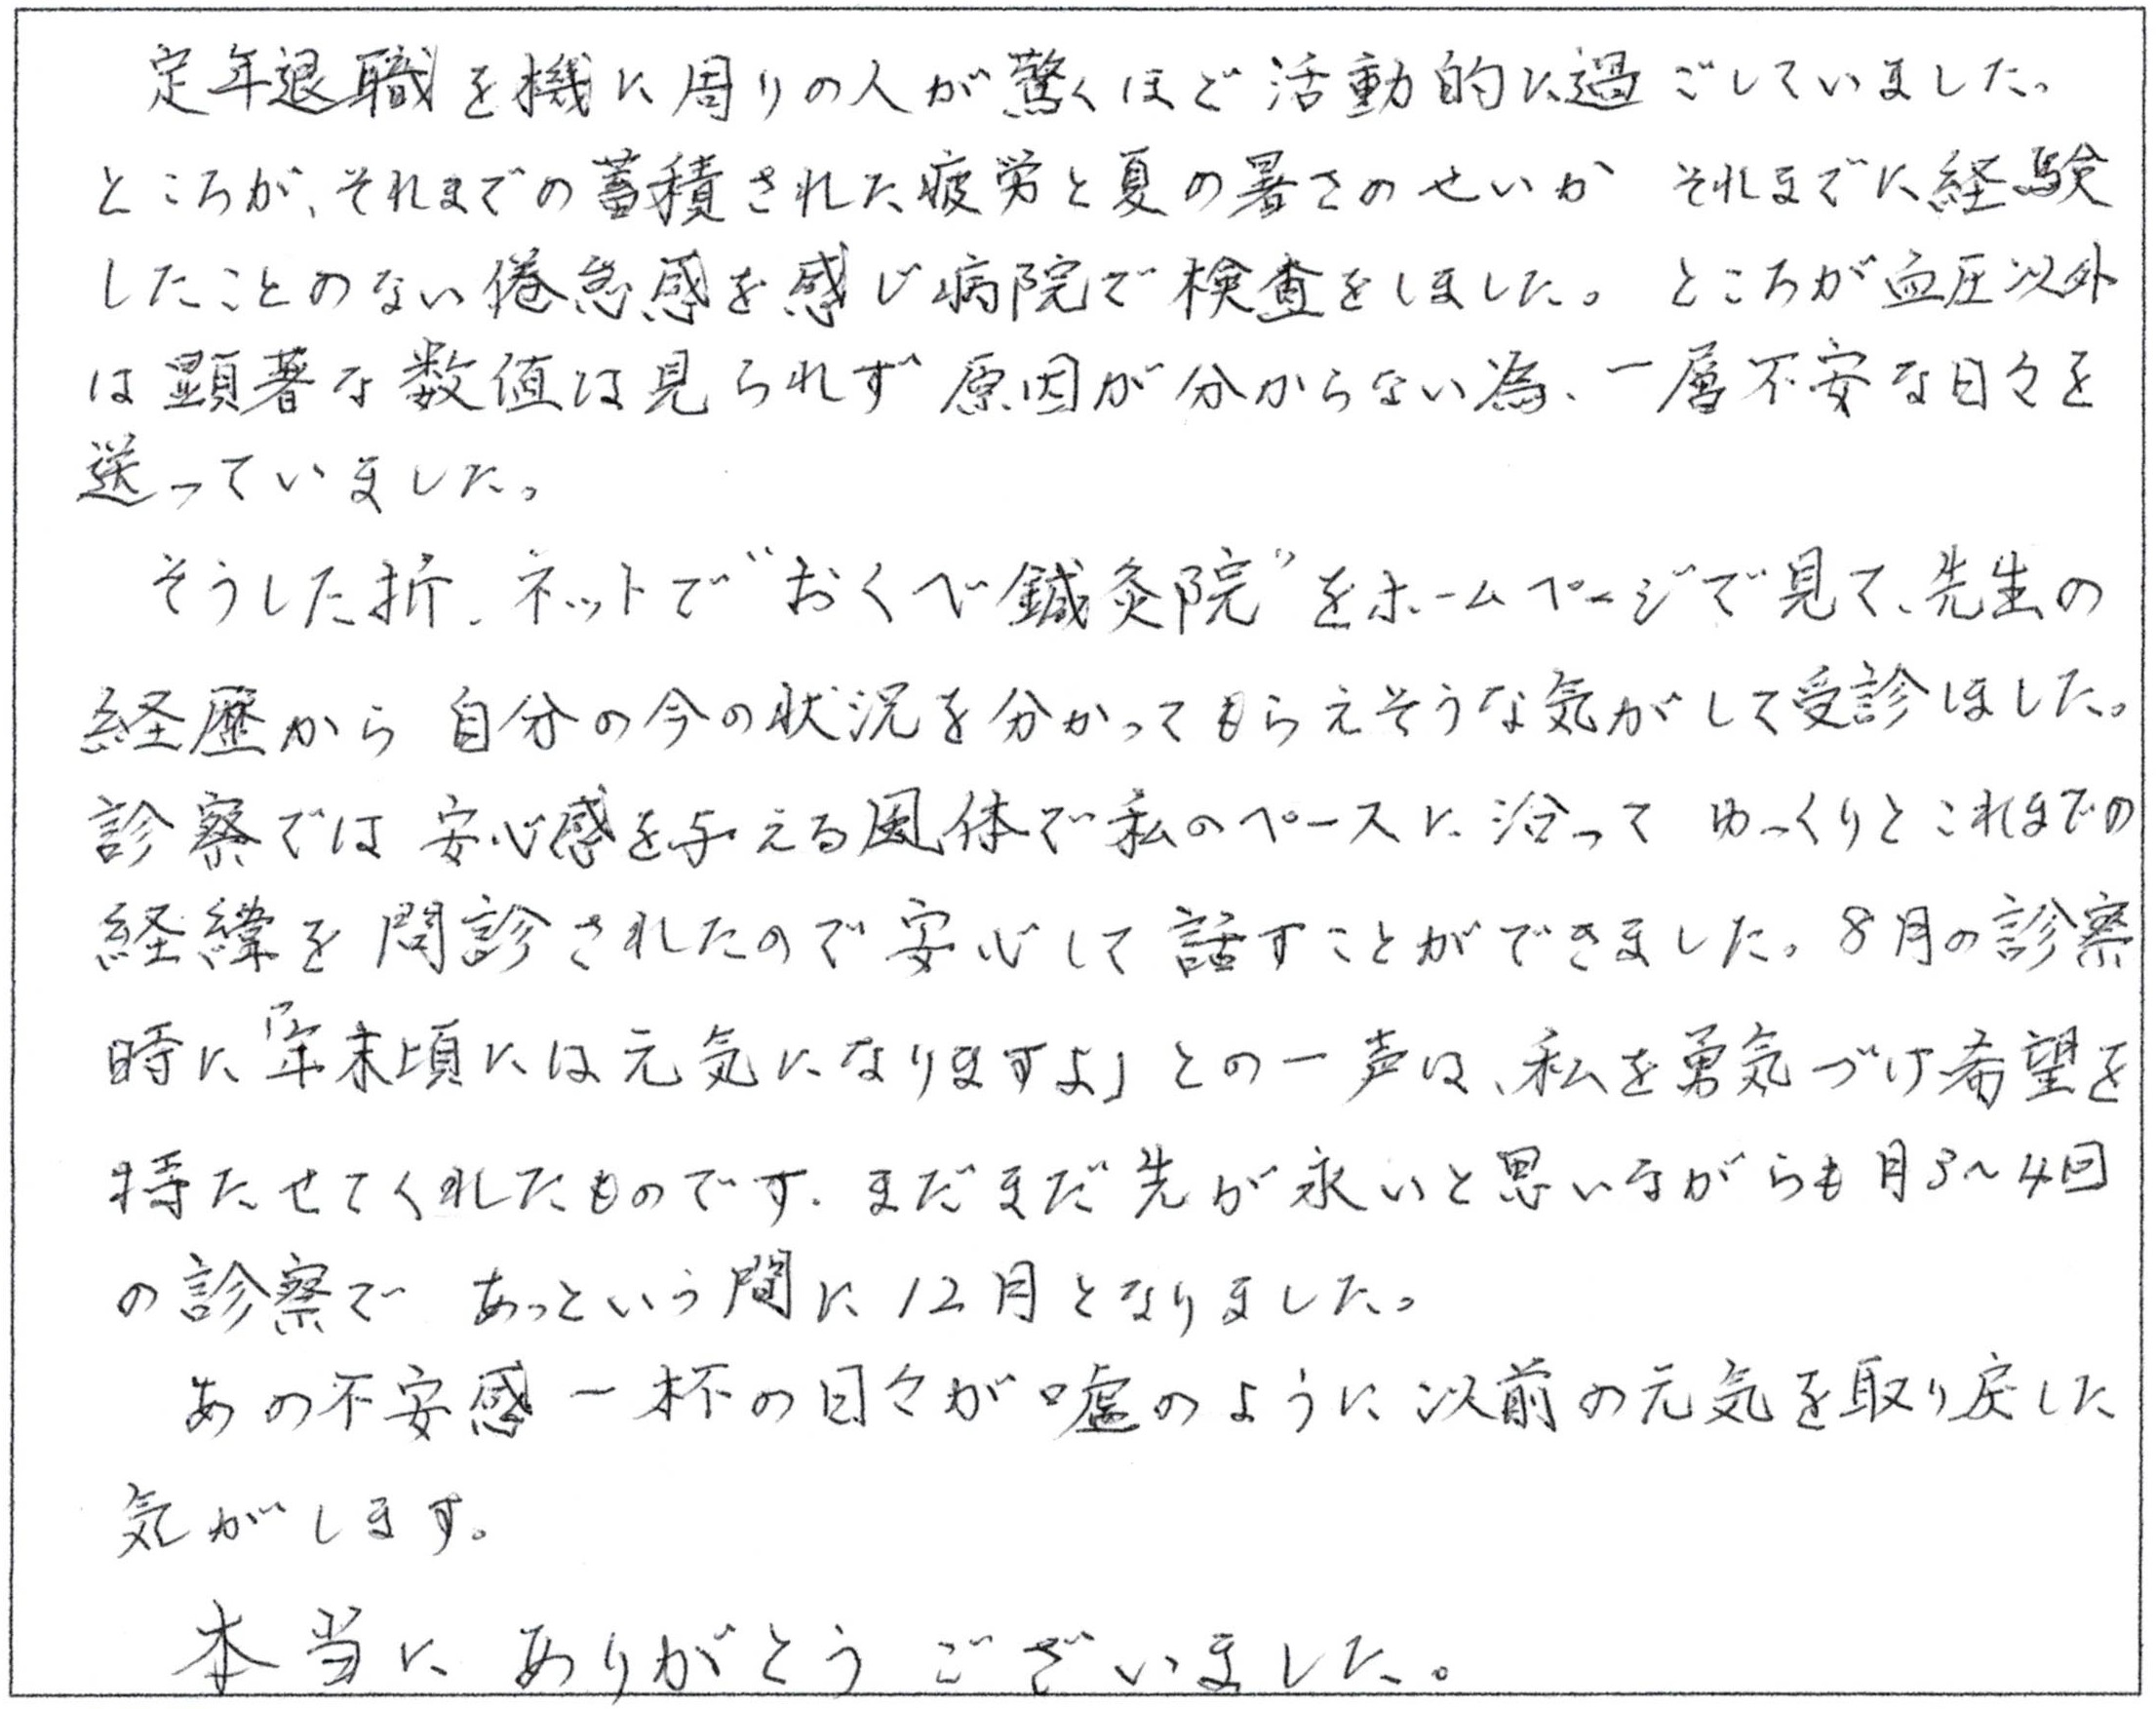 定年退職を機に周りの人が驚くほど活動的に過ごしていました。
ところが、それまでの蓄積された疲労と夏の暑さのせいか それまでに経験
したことのない倦怠感を感じ病院で検査をしました。 ところが血圧以外
は顕著な数値は見られず 原因が分からない為、一層不安な日々を
送っていました。
そうした折、ネットで“おくべ鍼灸院”をホームページで見て、先生の
経歴から 自分の今の状況を分かってもらえそうな気がして受診しました。
診察では 安心感を与える風体で私のペースに沿って ゆっくりとこれまでの
経緯を問診されたので安心して話すことができました。8月の診察
時に「年末頃には元気になりますよ」との一声は、私を勇気づけ希望を
持たせてくれたものです。まだまだ先が永いと思いながらも月3~4回
の診察で あっという間に12月となりました。
あの不安感一杯の日々が嘘のように以前の元気を取り戻した
気がします。
本当に ありがとう ございました。